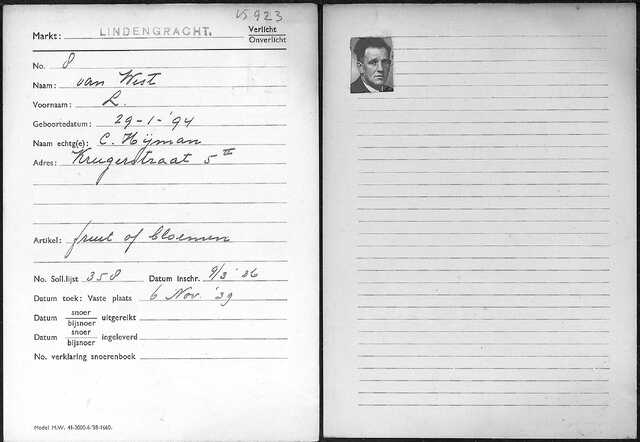 VS 923
Markt: LINDENGRACHT. Verlicht
Onverlicht
No. 8
Naam: van West
Voornaam: L.
Geboortedatum: 29-1-'94
Naam echtg(e): C. Hijman
Adres: Krugerstraat 5 II
Artikel: fruit of bloemen
No. Soll.lijst 358 Datum Inschr. 9/3 '36
Datum toek: Vaste plaats 6 Nov. '39
Datum snoer
bijsnoer uitgereikt
Datum snoer
bijsnoer ingeleverd
No. verklaring snoerenboek
Model M.W. 41-3000-6-'38-1660.